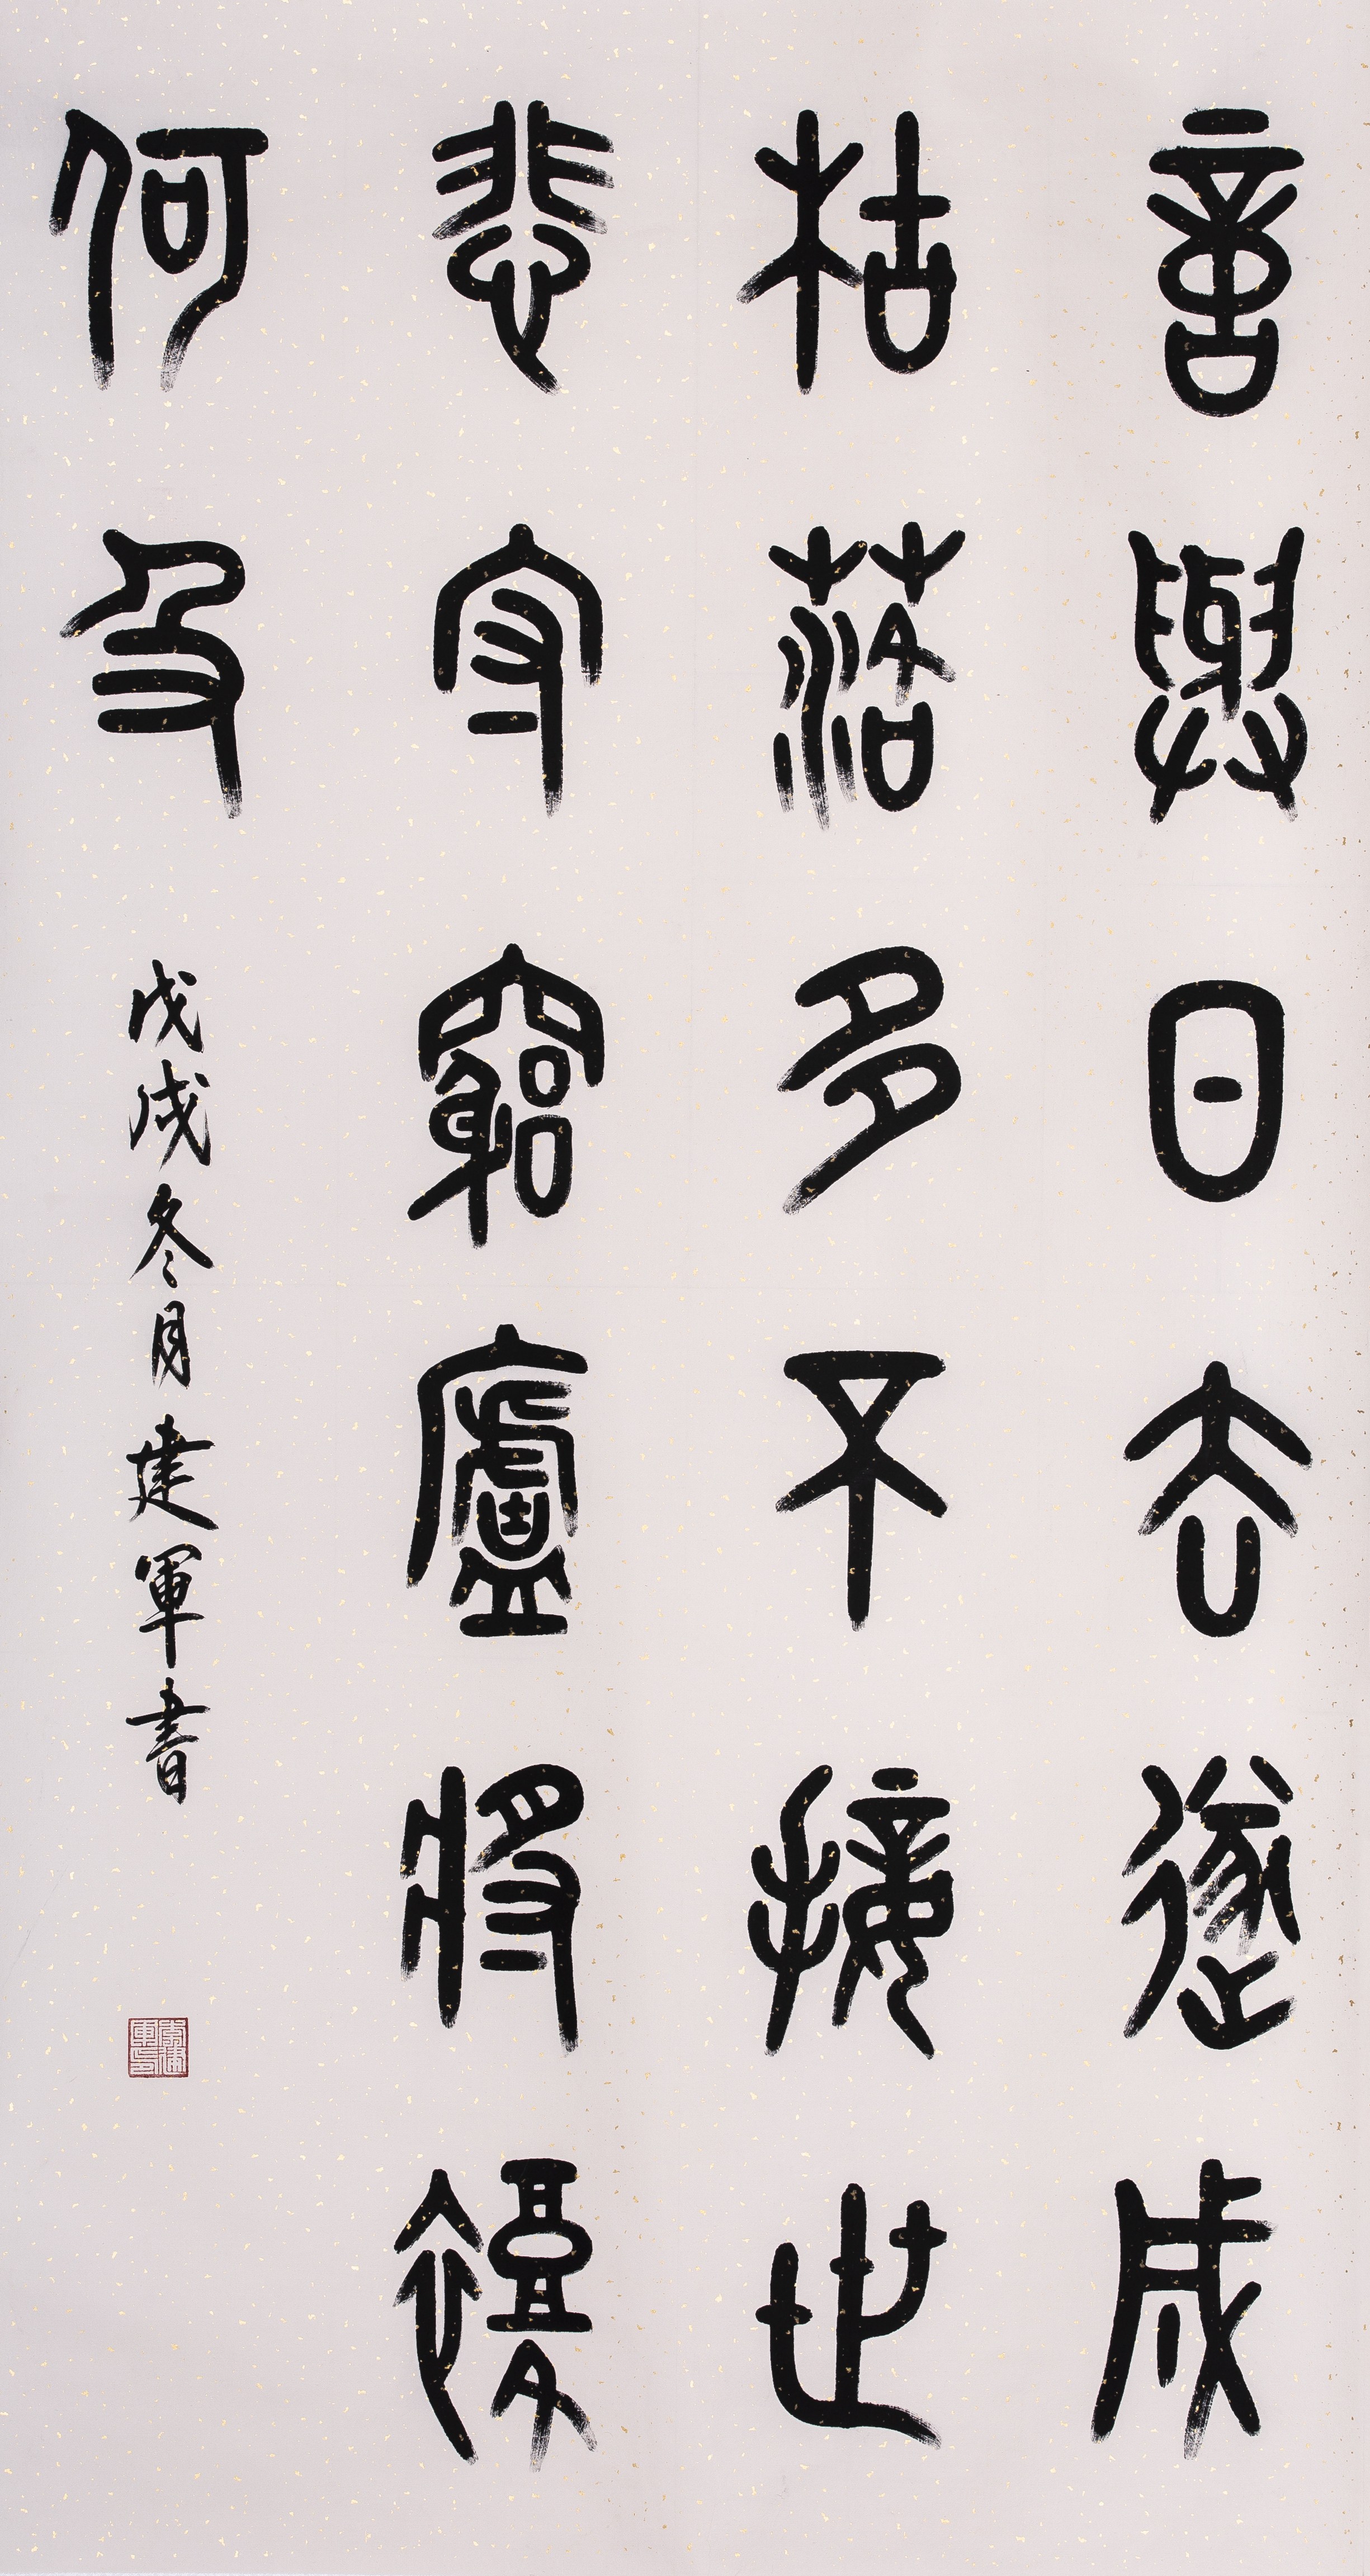 意與日去遂成
枯落多不接世
悲守窮廬將復
何及
戊戌冬月建軍書